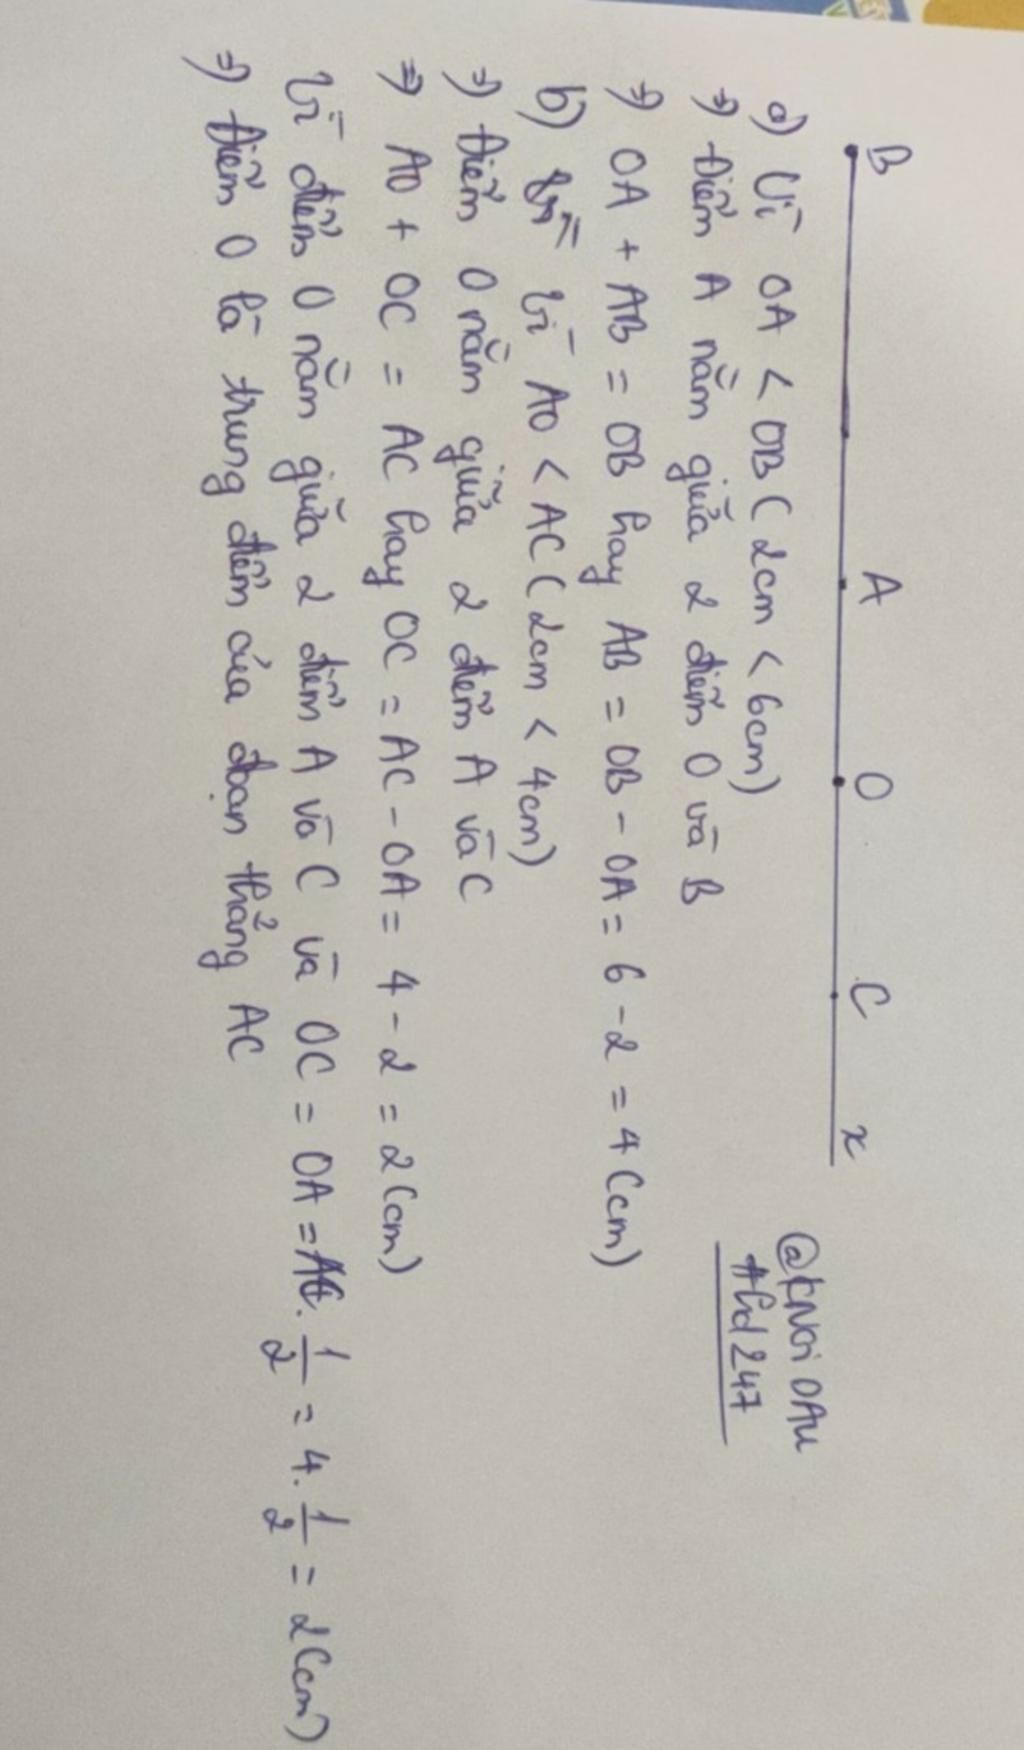 B A O C x
@KNGiOAu
#hd247
a) Vì OA < OB ( 2cm < 6cm)
⇒ Điểm A nằm giữa 2 điểm O và B
⇒ OA + AB = OB hay AB = OB - OA = 6 - 2 = 4 (cm)
b) Vì AO < AC ( 2cm < 4cm)
⇒ Điểm O nằm giữa 2 điểm A và C
⇒ AO + OC = AC hay OC = AC - OA = 4 - 2 = 2 (cm)
Vì điểm O nằm giữa 2 điểm A và C và OC = OA = AC . 1/2 = 4 . 1/2 = 2 (cm)
⇒ Điểm O là trung điểm của đoạn thẳng AC